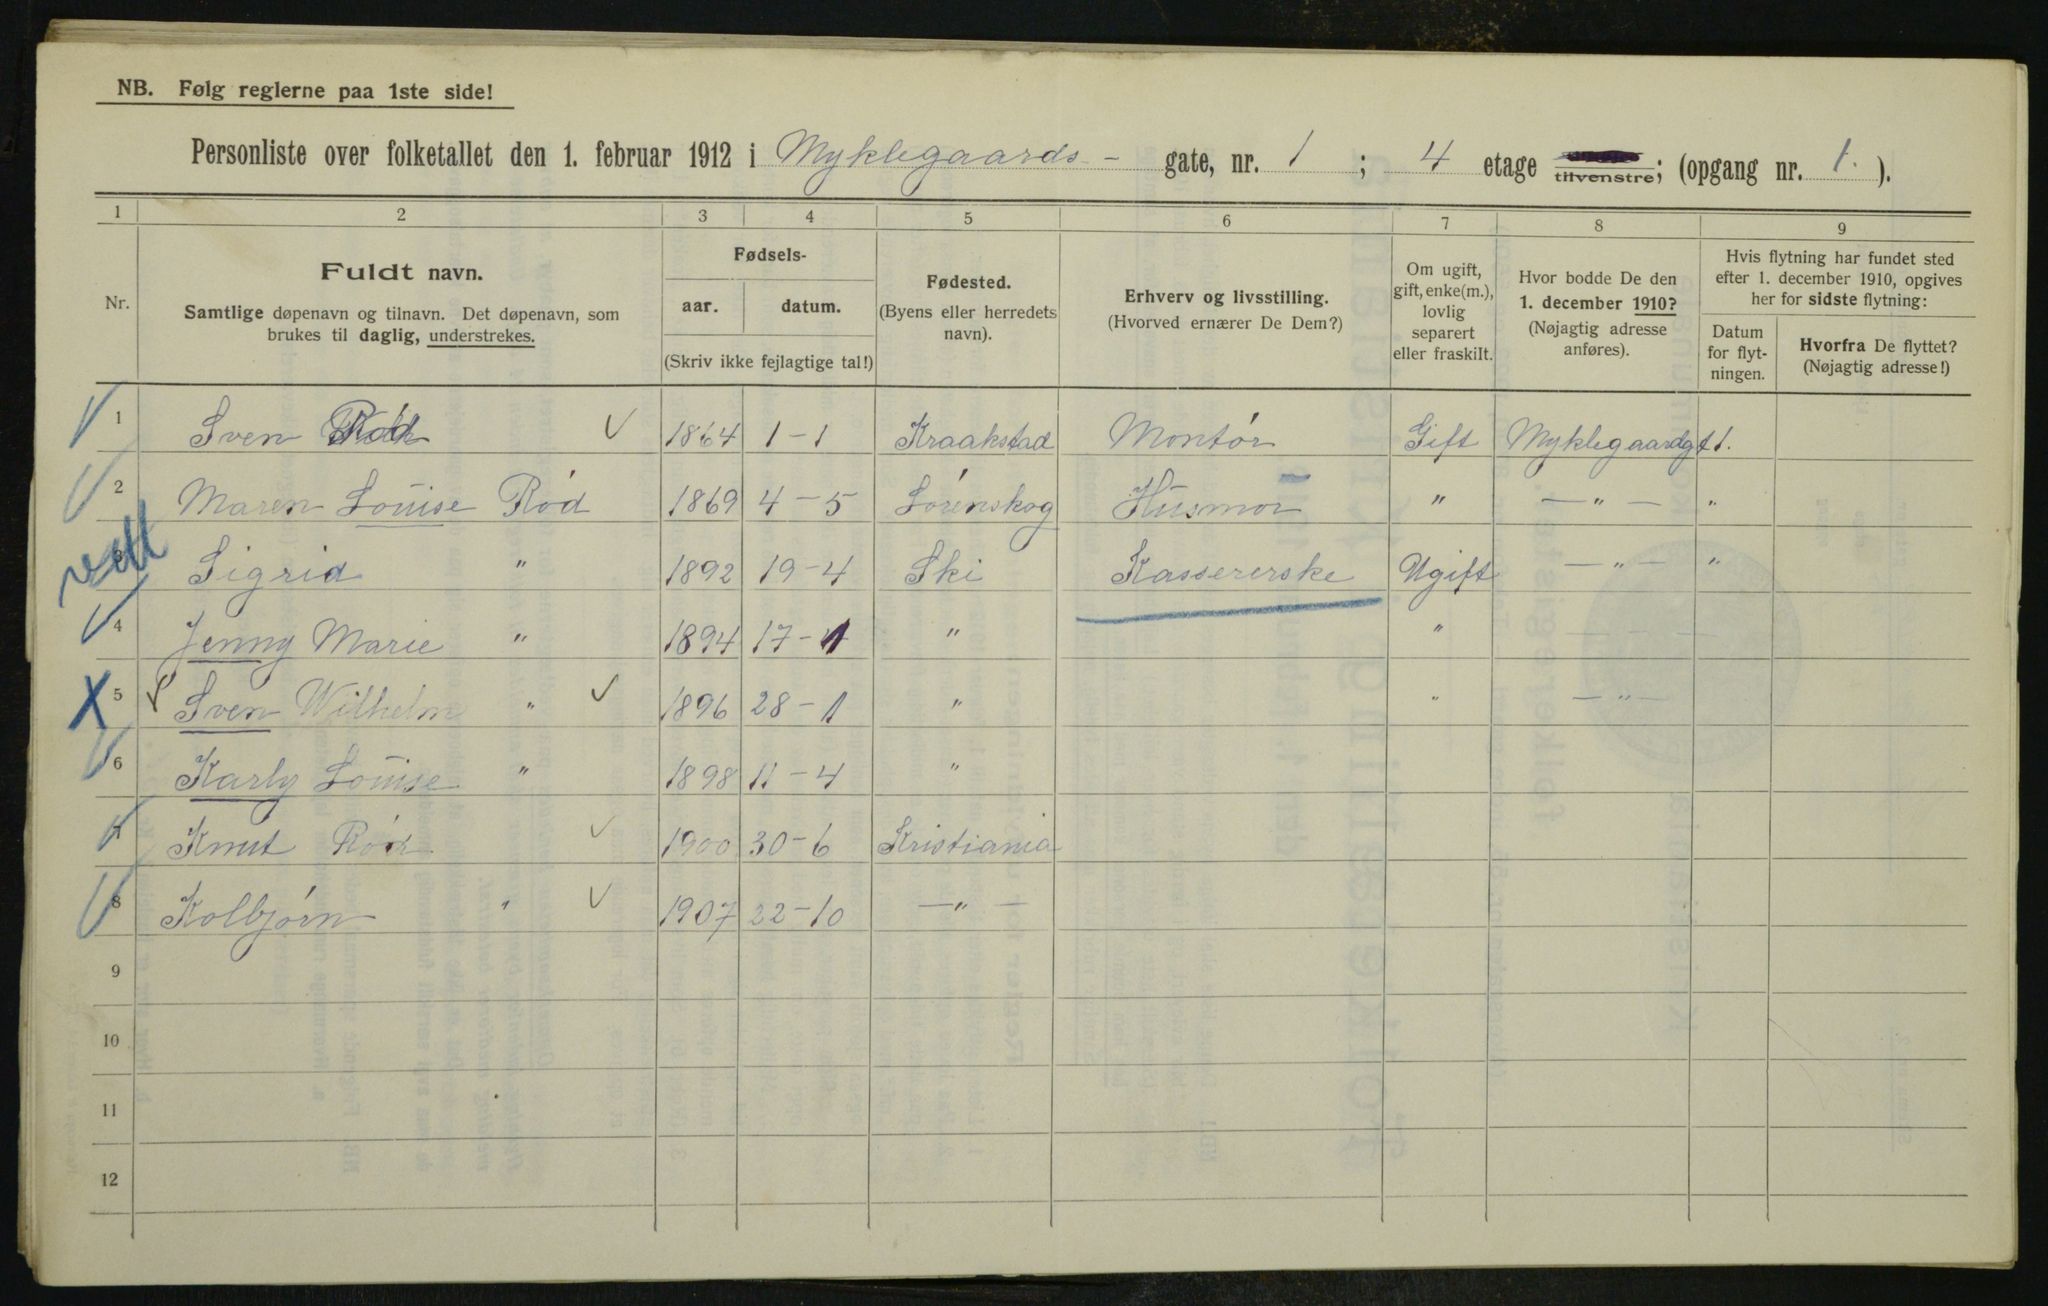 NB. Følg reglerne paa 1ste side!
Personliste over folketallet den 1. februar 1912 i Myklegaards- gate, nr. 1 ; 4 etage tilvenstre; (opgang nr. 1. ).
1 2 3 4 5 6 7 8 9
Nr.
Fuldt navn.
Samtlige døpenavn og tilnavn. Det døpenavn, som
brukes til daglig, understrekes.
Fødsels-
aar. datum.
(Skriv ikke fejlagtige tal!)
Fødested.
(Byens eller herredets
navn).
Erhverv og livsstilling.
(Hvorved ernærer De Dem?)
Om ugift,
gift, enke(m.),
lovlig
separert
eller fraskilt.
Hvor bodde De den
1. december 1910?
(Nøjagtig adresse
anføres).
Hvis flytning har fundet sted
efter 1. december 1910, opgives
her for sidste flytning:
Datum
for flyt-
ningen.
Hvorfra De flyttet?
(Nøjagtig adresse!)
1 Sven 1864 1-1 Kraakstad Montør Gift Myklegaardgt 1.
2 Maren Louise Rød 1869 4-5 Lørenskog Husmor " —"— "
3 Sigrid " 1892 19-4 Ski Kassererske Ugift —"— "
4 Jenny Marie " 1894 17- " "
5 Sven Wilhelm " 1896 28-1 " " —"—
6 Karly Louise " 1898 11-4 "
Knut 1900 30-6 Kristiania
8 Kolbjørn " 1907 22-10 —"—
9
10
11
12